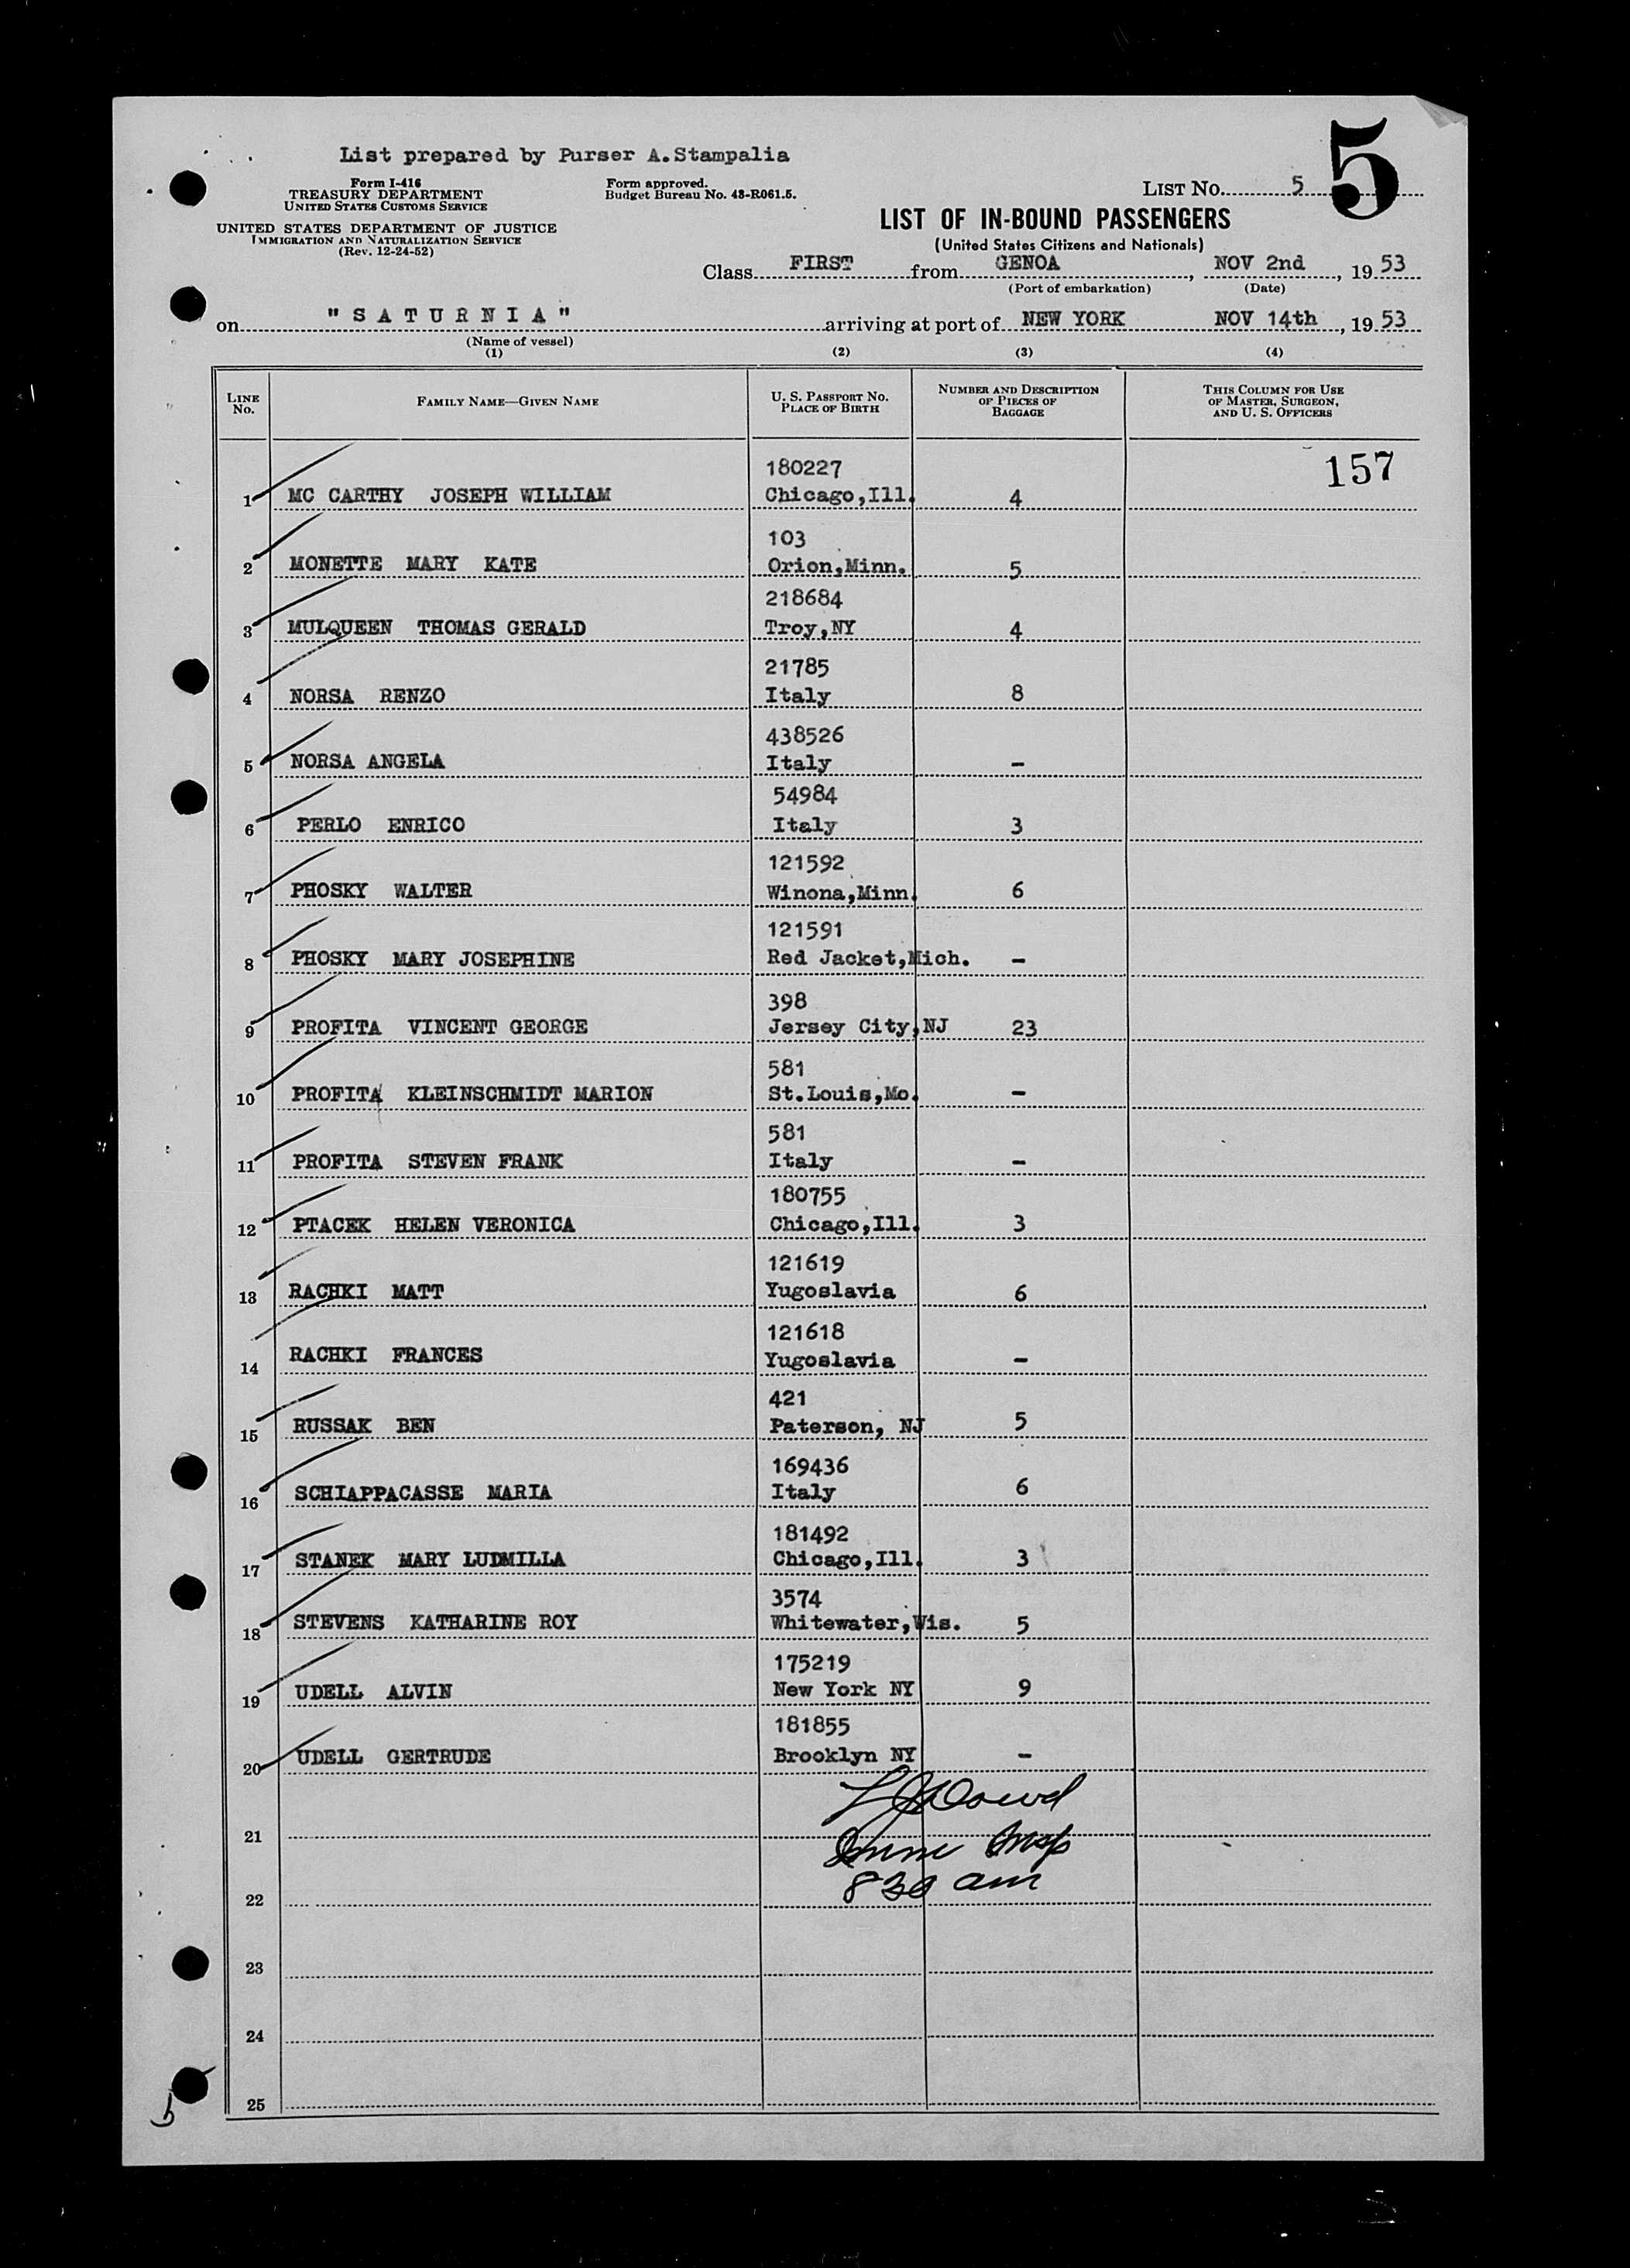 List prepared by Purser A.Stampalia
Form I-416
TREASURY DEPARTMENT
UNITED STATES CUSTOMS SERVICE
UNITED STATES DEPARTMENT OF JUSTICE
IMMIGRATION AND NATURALIZATION SERVICE
(Rev. 12-24-52)
Form approved.
Budget Bureau No. 43-R061.5.
LIST No. 5
5
LIST OF IN-BOUND PASSENGERS
(United States Citizens and Nationals)
Class FIRST from GENOA, NOV 2nd, 19 53
(Port of embarkation) (Date)
on "SATURNIA" arriving at port of NEW YORK NOV 14th, 19 53
(Name of vessel)
(1) (2) (3) (4)
LINE No. FAMILY NAME—GIVEN NAME U. S. PASSPORT No. PLACE OF BIRTH NUMBER AND DESCRIPTION OF PIECES OF BAGGAGE THIS COLUMN FOR USE OF MASTER, SURGEON, AND U. S. OFFICERS
157
180227
1 MC CARTHY JOSEPH WILLIAM Chicago,Ill. 4
103
2 MONETTE MARY KATE Orion,Minn. 5
218684
3 MULQUEEN THOMAS GERALD Troy,NY 4
21785
4 NORSA RENZO Italy 8
438526
5 NORSA ANGELA Italy -
54984
6 PERLO ENRICO Italy 3
121592
7 PHOSKY WALTER Winona,Minn. 6
121591
8 PHOSKY MARY JOSEPHINE Red Jacket,Mich. -
398
9 PROFITA VINCENT GEORGE Jersey City,NJ 23
581
10 PROFITA KLEINSCHMIDT MARION St.Louis,Mo. -
581
11 PROFITA STEVEN FRANK Italy -
180755
12 PTACEK HELEN VERONICA Chicago,Ill. 3
121619
13 RACHKI MATT Yugoslavia 6
121618
14 RACHKI FRANCES Yugoslavia -
421
15 RUSSAK BEN Paterson, NJ 5
169436
16 SCHIAPPACASSE MARIA Italy 6
181492
17 STANEK MARY LUDMILLA Chicago,Ill. 3
3574
18 STEVENS KATHARINE ROY Whitewater,Wis. 5
175219
19 UDELL ALVIN New York NY 9
181855
20 UDELL GERTRUDE Brooklyn NY -
21
Imm Insp
830 am
22
23
24
25
5